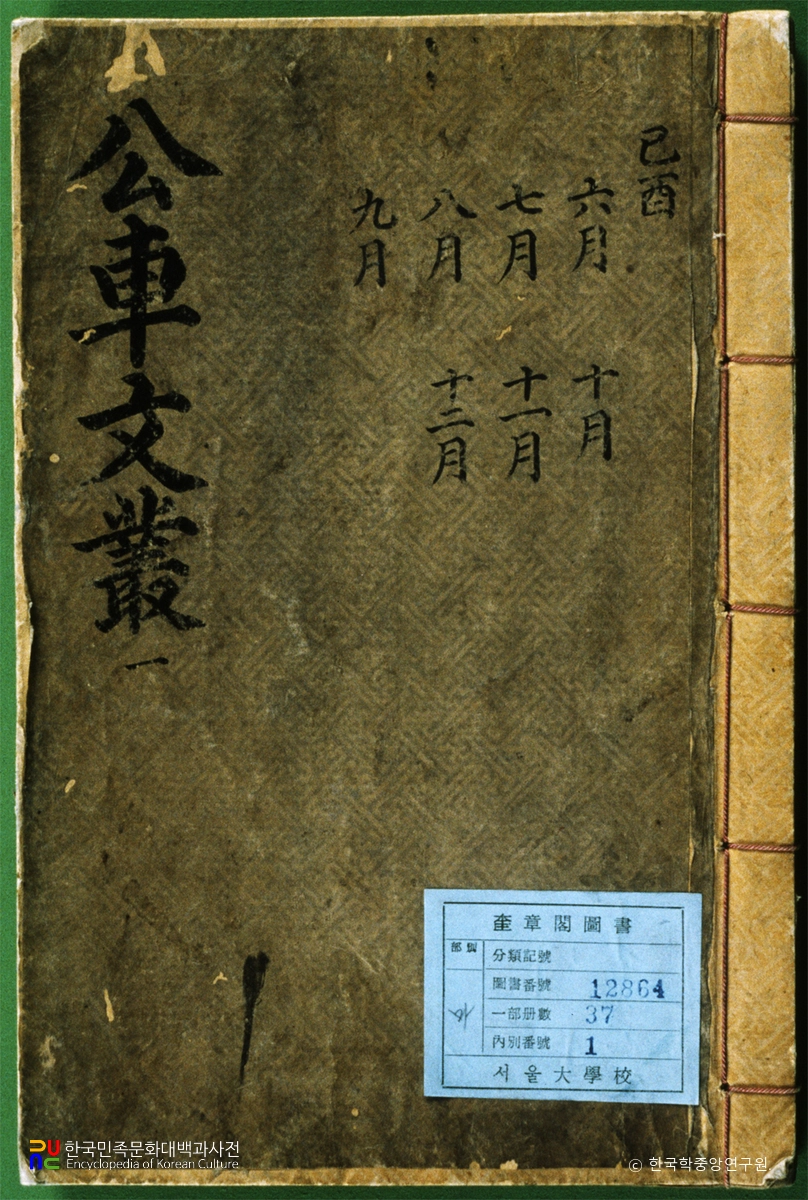 己酉
六月 十月
七月 十一月
八月 十二月
九月
公車文叢 一
奎章閣圖書
部類
分類記號
圖書番號 12864
一部册數 37
內別番號 1
서울大學校
한국민족문화대백과사전
Encyclopedia of Korean Culture
© 한국학중앙연구원